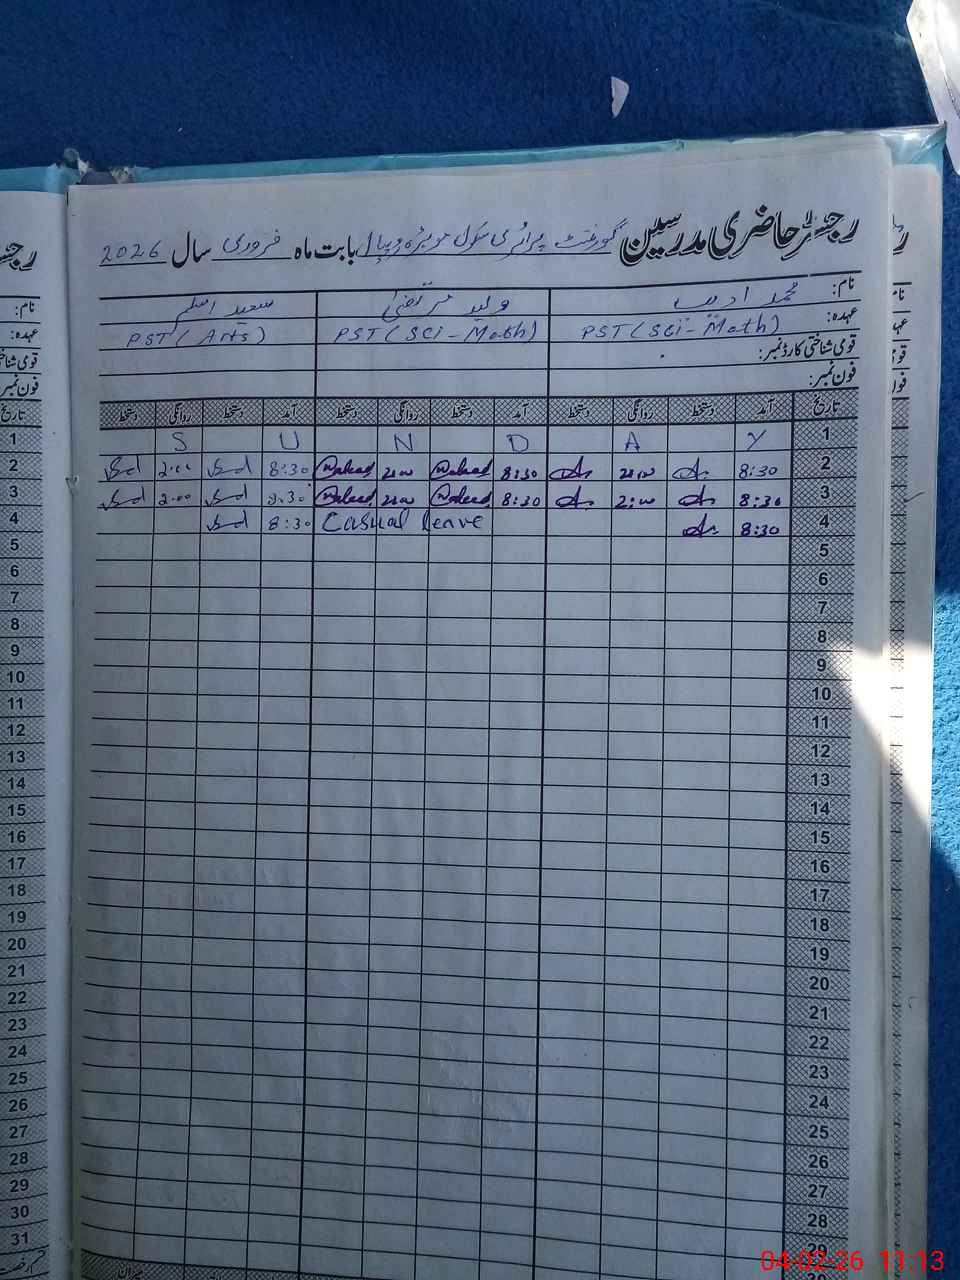 رجسٹر حاضری مدرسین گورنمنٹ پرائمری سکول بابت ماہ فروری سال 2026
نام: محمد ادریس ولید مرتضیٰ سعید اسلم
عہدہ: PST (Sci - Math) PST (Sci - Math) PST (Arts)
قومی شناختی کارڈ نمبر:
فون نمبر:
تاریخ آمد دستخط روانگی دستخط آمد دستخط روانگی دستخط آمد دستخط روانگی دستخط
1 S U N D A Y
2 8:30 2:00 8:30 Waleed 2:00 Waleed 8:30 2:00
3 8:30 2:00 8:30 Waleed 2:00 Waleed 8:30 2:00
4 8:30 Casual leave 8:30
5
6
7
8
9
10
11
12
13
14
15
16
17
18
19
20
21
22
23
24
25
26
27
28
29
نام:
فون نمبر:
تاریخ
1
2
3
4
5
6
7
8
9
10
11
12
13
14
15
16
17
18
19
20
21
22
23
24
25
26
27
28
29
30
31
04-02-26 11:13